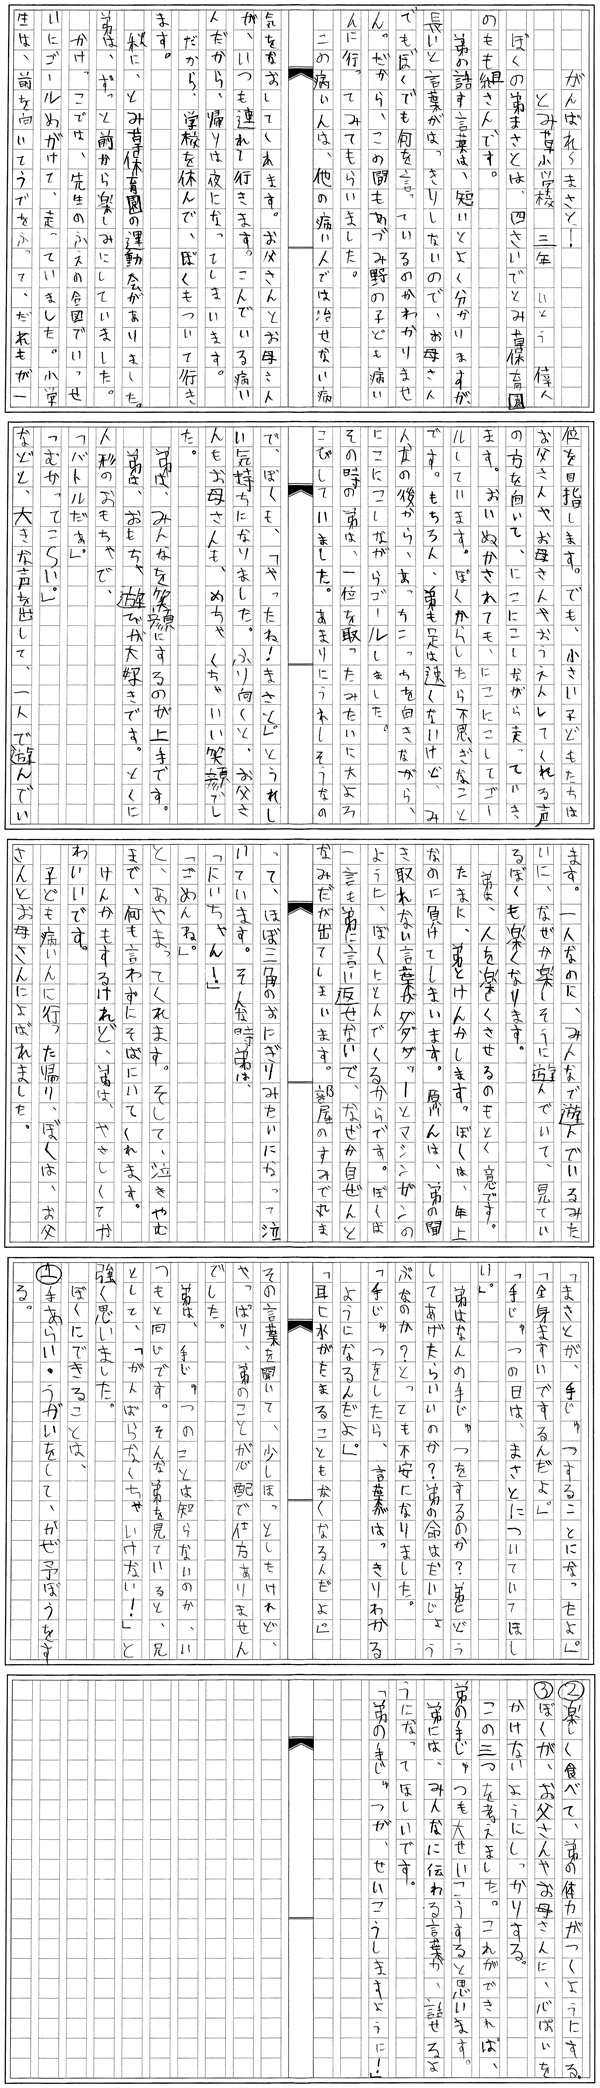 がんばれ～まさと！
とみ草小学校　三年　いとう　惇人
ぼくの弟まさとは、四さいでとみ草保育園
のもも組さんです。
弟の話す言葉は、短いとよく分かりますが、
長いと言葉がはっきりしないので、お母さん
でもぼくでも何を言っているのかわかりませ
ん。だから、この間もあづみ野の子ども病い
んに行ってみてもらいました。
この病いんは、他の病いんでは治せない病
気をなおしてくれます。お父さんとお母さん
が、いつも連れて行きます。こんでいる病い
んだから、帰りは夜になってしまいます。
だから、学校を休んで、ぼくもついて行き
ます。
秋に、とみ草保育園の運動会がありました。
弟は、ずっと前から楽しみにしていました。
かけっこでは、先生のふえの合図でいっせ
いにゴールめがけて、走っていました。小学
生は、前を向いてうでをふって、だれもが一
位を目指します。でも、小さい子どもたちは
お父さんやお母さんやおうえんしてくれる声
の方を向いて、にこにこしながら走っていき
ます。おいぬかされても、にこにこしてゴー
ルしています。ぼくからしたら不思ぎなこと
です。もちろん、弟も足は速くないけど、み
んなの後から、あっちこっちを向きながら、
にこにこしながらゴールしました。
その時の弟は、一位を取ったみたいに大よろ
こびしていました。あまりにうれしそうなの
で、ぼくも、「やったね！まさと」とうれし
い気持ちになりました。ふり向くと、お父さ
んもお母さんも、めちゃくちゃいい笑顔でし
た。
弟は、みんなを笑顔にするのが上手です。
弟は、おもちゃ遊びが大好きです。とくに
人形のおもちゃで、
「バトルだぁ」。
「むかってこらい。」
などと、大きな声を出して、一人で遊んでい
ます。一人なのに、みんなで遊んでいるみた
いに、なぜか楽しそうに遊んでいて、見てい
るぼくも楽くなります。
弟は、人を楽くさせるのもとく意です。
たまに、弟とけんかします。ぼくは、年上
なのに負けてしまいます。原いんは、弟の聞
き取れない言葉がダダダッーとマシンガンの
ように、ぼくにとんでくるからです。ぼくは
一言も弟に言い返せないで、なぜか自ぜんと
なみだが出てしまいます。部屋のすみで丸ま
って、ほぼ三角のおにぎりみたいになって泣
いています。そんな時弟は、
「にいちゃん！」
「ごめんね。」
と、あやまってくれます。そして、泣きやむ
まで、何も言わずにそばにいてくれます。
けんかもするけれど、弟は、やさしくてか
わいいです。
子ども病いんに行った帰り、ぼくは、お父
さんとお母さんによばれました。
「まさとが、手じゅつすることになったよ。」
「全身ますいでするんだよ。」
「手じゅつの日は、まさとについていてほし
い。」
弟はなんの手じゅつをするのか？弟にどう
してあげたらいいのか？弟の命はだいじょう
ぶなのか？とっても不安になりました。
「手じゅつをしたら、言葉がはっきりわかる
ようになるんだよ。」
「耳に水がたまることもなくなるんだよ。」
その言葉を聞いて、少しほっとしたけれど、
やっぱり、弟のことが心配で仕方ありません
でした。
弟は、手じゅつのことは知らないのか、い
つもと同じです。そんな弟を見ていると、兄
として、「がんばらなくちゃいけない！」と
強く思いました。
ぼくにできることは、
①手あらい・うがいをして、かぜ予ぼうをす
る。
②楽しく食べて、弟の体力がつくようにする。
③ぼくが、お父さんやお母さんに、心ぱいを
かけないようにしっかりする。
この三つを考えました。これができれば、
弟の手じゅつも大せいこうすると思います。
弟には、みんなに伝わる言葉が、話せるよ
うになってほしいです。
「弟の手じゅつが、せいこうしますように！」